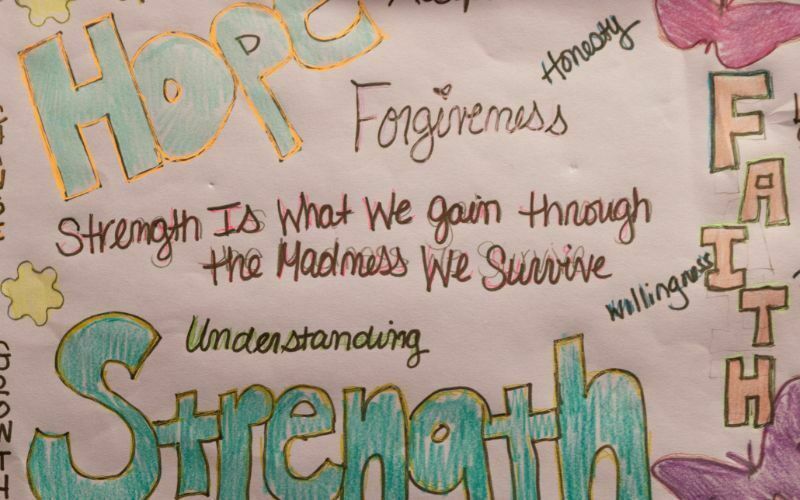 HOPE
Honesty
Forgiveness
FAITH
Strength Is What We gain through
the Madness We Survive
Willingness
Understanding
Strength